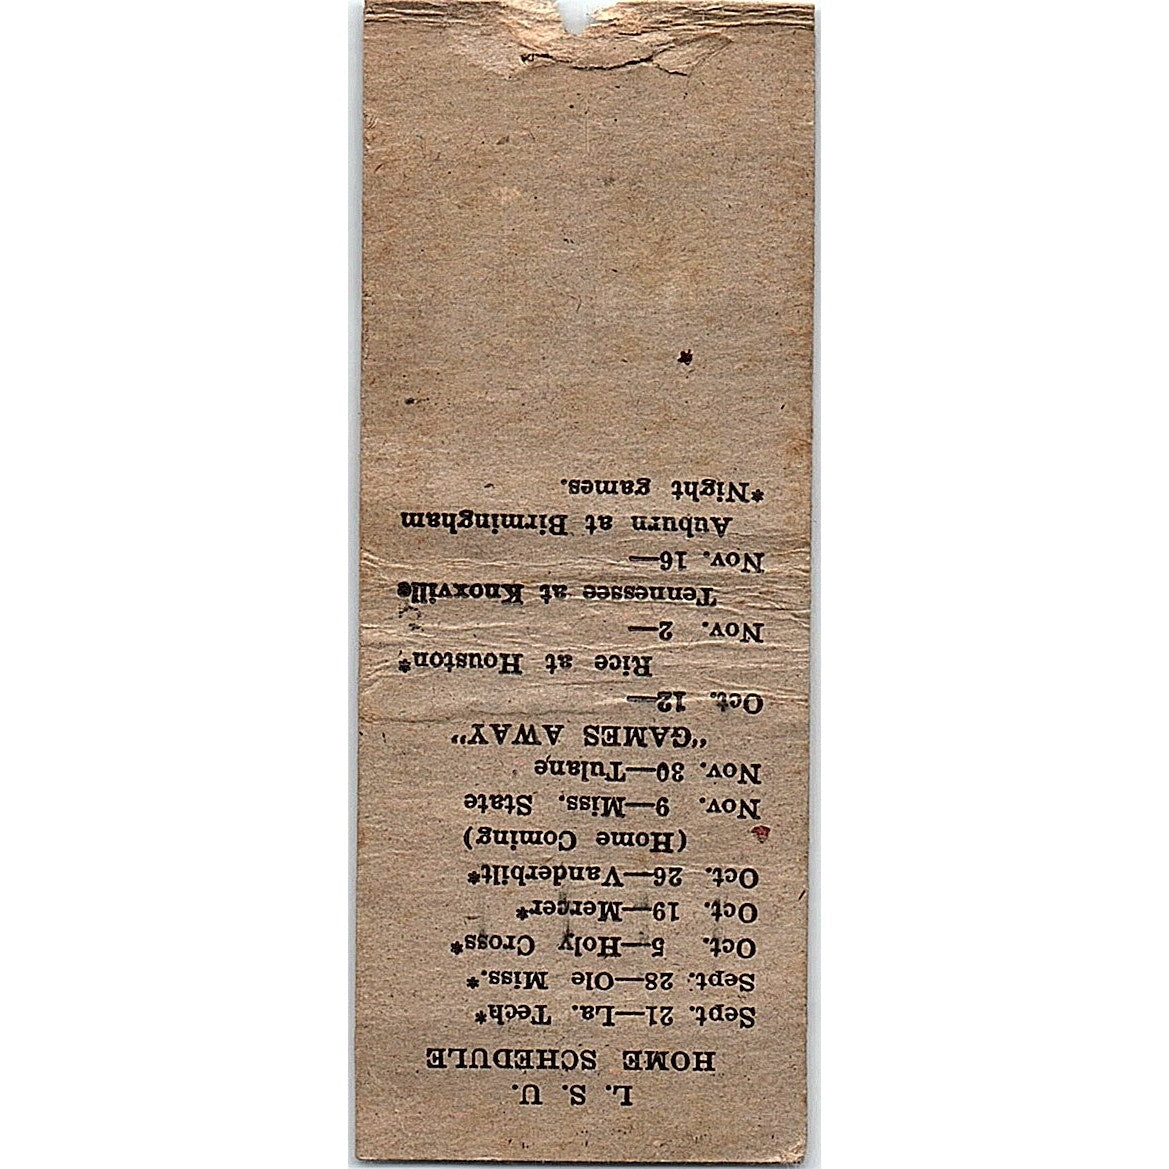 L. S. U.
HOME SCHEDULE
Sept. 21—La. Tech*
Sept. 28—Ole Miss.*
Oct. 5—Holy Cross*
Oct. 19—Mercer*
Oct. 26—Vanderbilt*
(Home Coming)
Nov. 9—Miss. State
Nov. 30—Tulane
"GAMES AWAY"
Oct. 12—
Rice at Houston*
Nov. 2—
Tennessee at Knoxville
Nov. 16—
Auburn at Birmingham
*Night games.